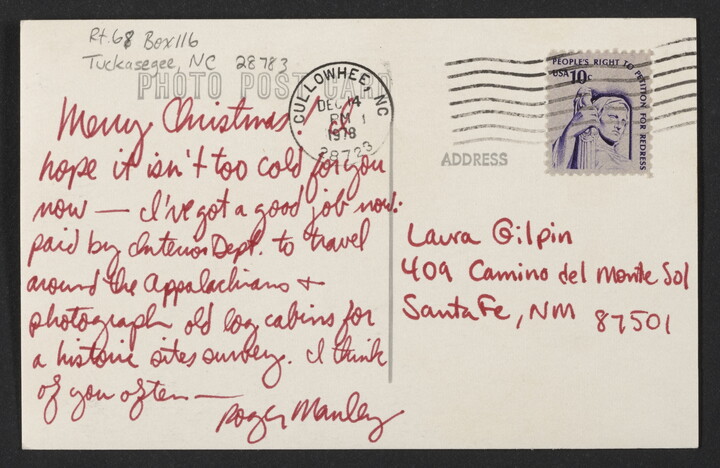 Rt. 68 Box 116
Tuckasegee, NC 28783
PHOTO POST CARD
CULLOWHEE, NC
DEC 14
PM
1978
28723
PEOPLE'S RIGHT TO PETITION FOR REDRESS
USA 10c
ADDRESS
Merry Christmas.
hope it isn't too cold for you
now — I've got a good job now:
paid by Interior Dept. to travel
around the Appalachians +
photograph old log cabins for
a historic sites survey. I think
of you often —
Roger Manley
Laura Gilpin
409 Camino del Monte Sol
Santa Fe, NM 87501